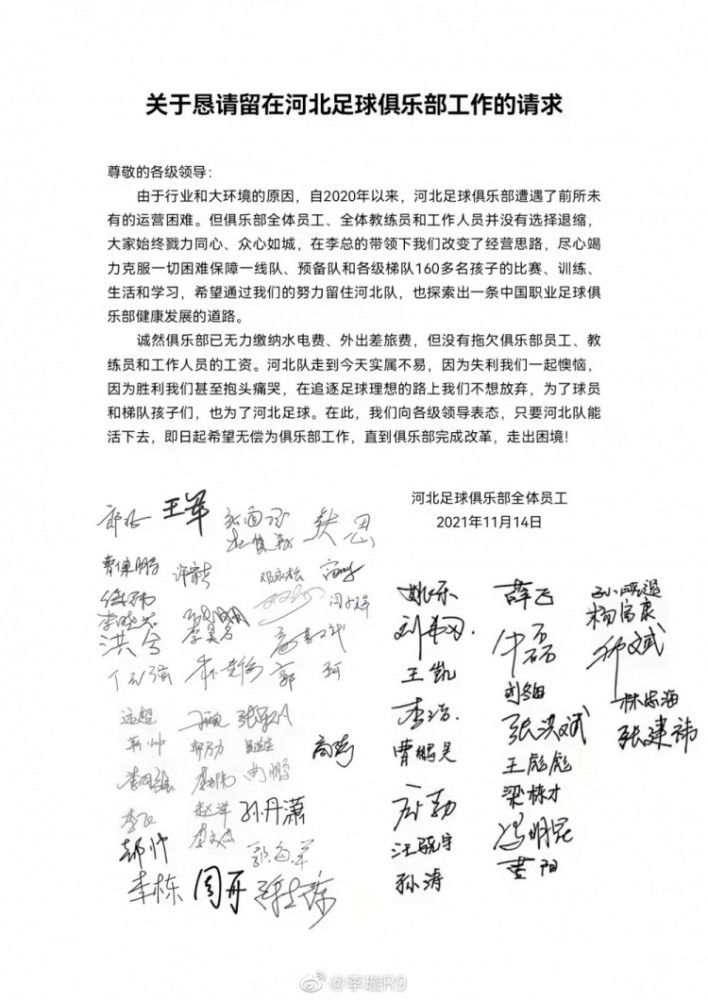 关于恳请留在河北足球俱乐部工作的请求
尊敬的各级领导：
由于行业和大环境的原因，自2020年以来，河北足球俱乐部遭遇了前所未
有的运营困难。但俱乐部全体员工、全体教练员和工作人员并没有选择退缩，
大家始终戮力同心、众心如城，在李总的带领下我们改变了经营思路，尽心竭
力克服一切困难保障一线队、预备队和各级梯队160多名孩子的比赛、训练、
生活和学习，希望通过我们的努力留住河北队，也探索出一条中国职业足球俱
乐部健康发展的道路。
诚然俱乐部已无力缴纳水电费、外出差旅费，但没有拖欠俱乐部员工、教
练员和工作人员的工资。河北队走到今天实属不易，因为失利我们一起懊恼，
因为胜利我们甚至抱头痛哭，在追逐足球理想的路上我们不想放弃，为了球员
和梯队孩子们，也为了河北足球。在此，我们向各级领导表态，只要河北队能
活下去，即日起希望无偿为俱乐部工作，直到俱乐部完成改革，走出困境！
河北足球俱乐部全体员工
2021年11月14日
王军
洪兮
郭 珂
姚乐 薛飞
杨富良
王凯
刘维
李浩 张洪斌 林忠海
曹鹏昊 张建祎
王彪彪
梁栋才
汪骁宇 冯明昆
孙涛 曹阳
高嵩
赵洋 孙丹潇
郝帅 郭海军
李栋 周开
@李璇R9